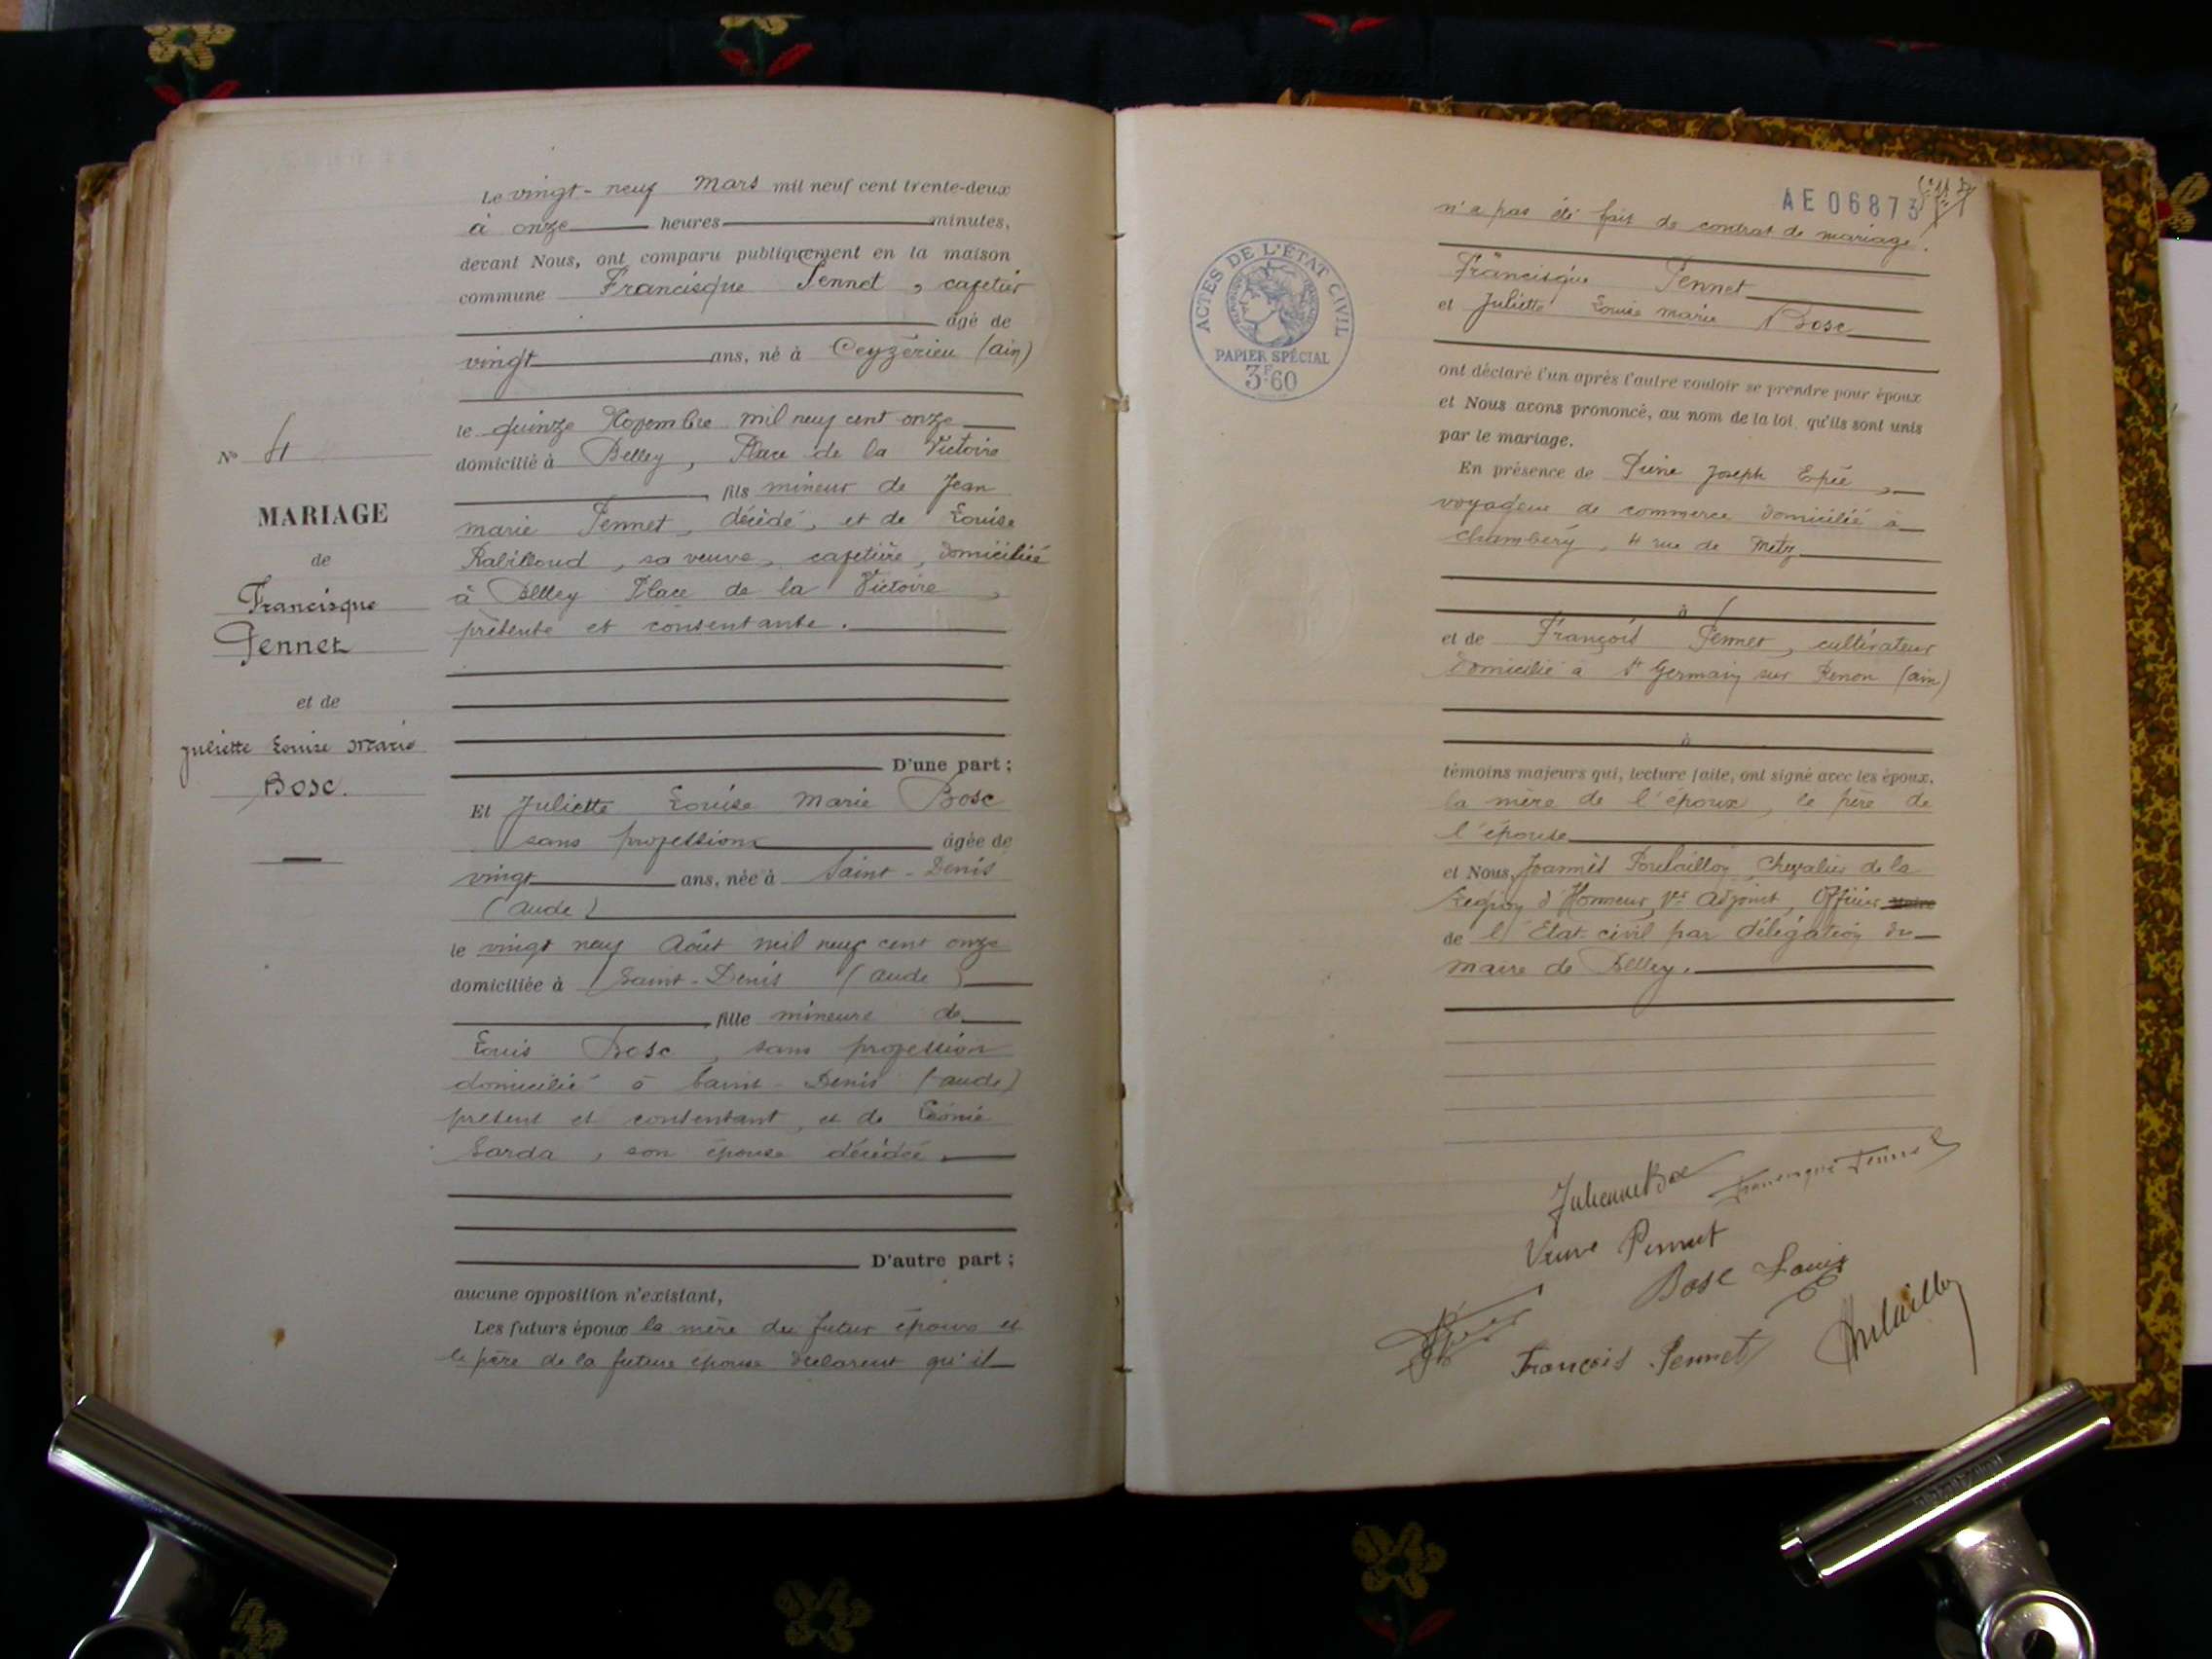 Le vingt-neuf Mars mil neuf cent trente-deux
à onze heures minutes,
devant Nous, ont comparu publiquement en la maison
commune Francisque Pennet, cafetier
âgé de
vingt ans, né à Ceyzérieu (Ain)
le quinze Novembre mil neuf cent onze
domicilié à Belley, Place de la Victoire
fils mineur de Jean
marie Pennet, décédé, et de Louise
Rabilloud, sa veuve, cafetière, domiciliée
à Belley Place de la Victoire,
présente et consentante.
D'une part ;
Et Juliette Louise Marie Bosc
sans profession âgée de
vingt ans, née à Saint-Denis
(Aude)
le vingt neuf Août mil neuf cent onze
domiciliée à Saint-Denis (Aude)
fille mineure de
Louis Bosc, sans profession
domicilié à Saint-Denis (Aude)
présent et consentant, et de Léonie
Sarda, son épouse décédée.
D'autre part ;
aucune opposition n'existant,
Les futurs époux la mère du futur époux et
le père de la future épouse déclarent qu'il
N° 4
MARIAGE
de
Francisque
Pennet
et de
Juliette Louise Marie
Bosc.
AE 06873
n'a pas été fait de contrat de mariage.
Francisque Pennet
et Juliette Louise Marie Bosc
ont déclaré l'un après l'autre vouloir se prendre pour époux
et Nous avons prononcé, au nom de la loi, qu'ils sont unis
par le mariage.
En présence de Joseph
voyageur de commerce domicilié à
Chambéry, 4 rue de Metz
à
et de François Pennet, cultivateur
domicilié à St Germain sur Renon (Ain)
à
témoins majeurs qui, lecture faite, ont signé avec les époux,
la mère de l'époux, le père de
l'épouse
et Nous, Joannès Chevalier de la
Légion d'Honneur, 1er Adjoint, Officier Maire
de l'Etat civil par délégation du
maire de Belley.
ACTES DE L'ÉTAT CIVIL
RÉPUBLIQUE FRANÇAISE
PAPIER SPÉCIAL
3F60
Bosc Francisque Pennet
Veuve Pennet
Bosc Louis
François Pennet